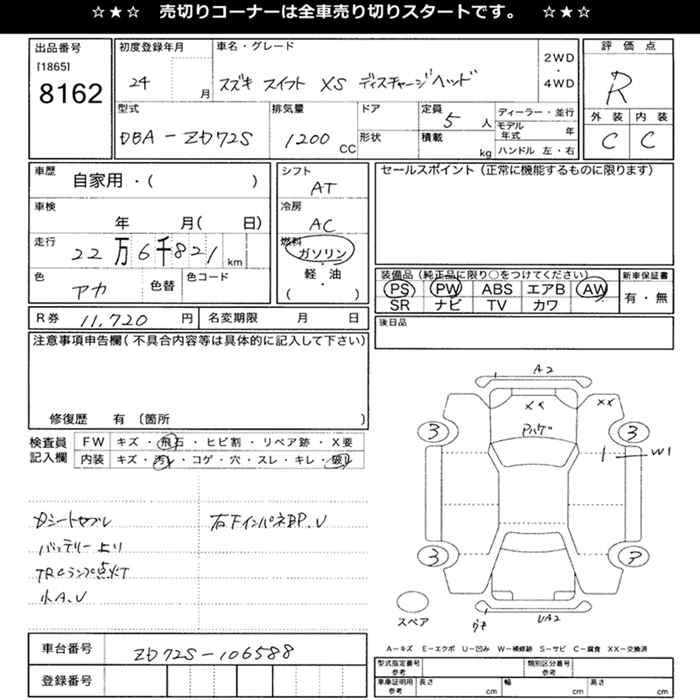 ☆★☆　売切りコーナーは全車売り切りスタートです。　☆★☆
出品番号
[1865]
8162
初度登録年月
24 月
車名・グレード
スズキ スイフト XS ディスチャージヘッド
2WD
・
4WD
評価点
R
外装 内装
C C
型式
DBA-ZD72S
排気量
1200 CC
ドア
形状
定員
5 人
積載
kg
ディーラー・並行
モデル年式 年
ハンドル 左・右
車歴
自家用・( )
車検
年 月( 日)
走行
22万6千821 km
色
アカ
色替
色コード
シフト
AT
冷房
AC
燃料
ガソリン
・
軽・油
・
( )
セールスポイント(正常に機能するものに限ります)
装備品(純正品に限り○をつけてください)
PS PW ABS エアB AW
SR ナビ TV カワ
新車保証書
有・無
R券 11,720 円
名変期限 月 日
後日品
注意事項申告欄(不具合内容等は具体的に記入して下さい)
修復歴 有 〔箇所 〕
検査員
記入欄
FW キズ・飛石・ヒビ割・リペア跡・X要
内装 キズ・汚レ・コゲ・穴・スレ・キレ・破レ
Dシートセブレ
バッテリー上り
TRCランプ点灯
小A.U
右下インパネBP.U
A2
XX
XX
Pハゲ
3
3
W1
3
3
スペア
ウキ
UA2
A-キズ E-エクボ U-凹み W-補修跡 S-サビ C-腐食 XX-交換済
車台番号 ZD72S-106588
登録番号
型式指定番号
参考
類別区分番号
参考
車庫証明用
参考
長さ cm
幅 cm
高さ cm